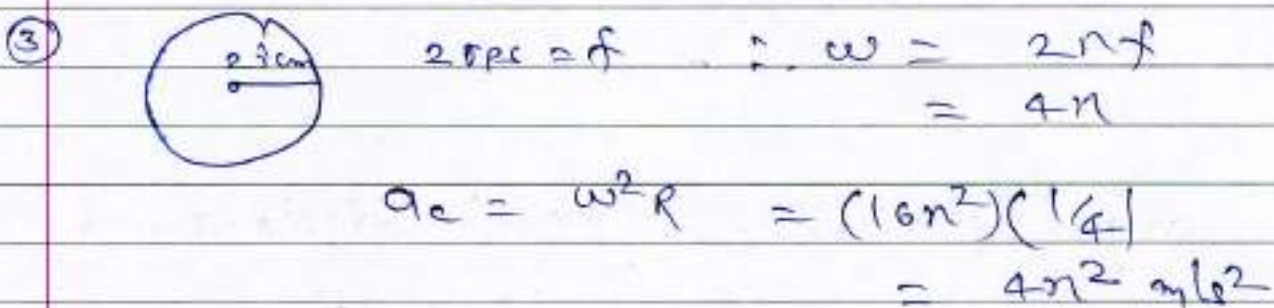 ③ 25cm 2rps = f ∴ ω = 2πf
= 4π
ac = ω²R = (16π²)(1/4)
= 4π² m/s²